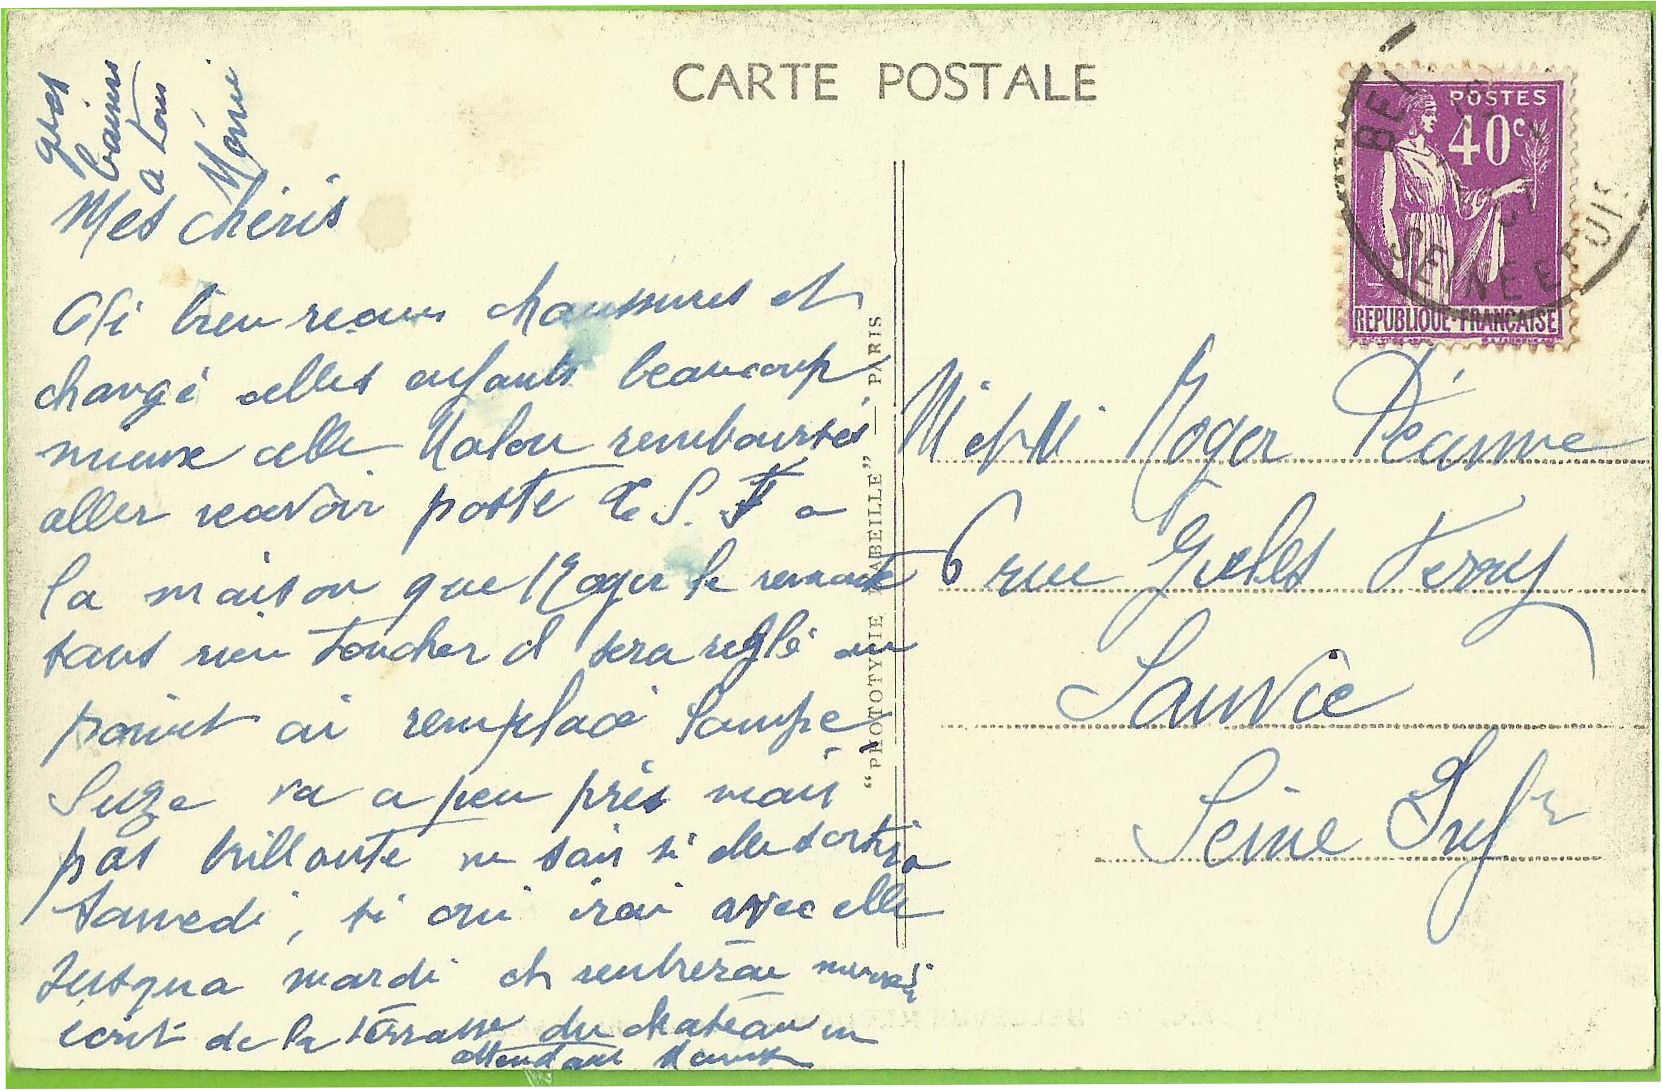 CARTE POSTALE
POSTES
40c
REPUBLIQUE FRANÇAISE
SEINE ET OIS
"PROTOTYPIE L'ABEILLE" — PARIS
gros
baisers
a tous
Mémé
Mes chéris
Ai bien reçu chaussures et
changé celles enfants beaucoup
mieux celle Malou remboursés
aller recevoir poste T. S. F a
la maison que Roger le remonte
sans rien toucher il sera reglé au
point ai remplacé lampe
Suze va a peu près mais
pas brillante ne sais si elle sortira
Samedi, si oui irai avec elle
Jusqua mardi et rentrerai mercredi
écrit de la térrasse du chateau en
attendant
Roger
6 rue Jules Ferry
Seine Infre